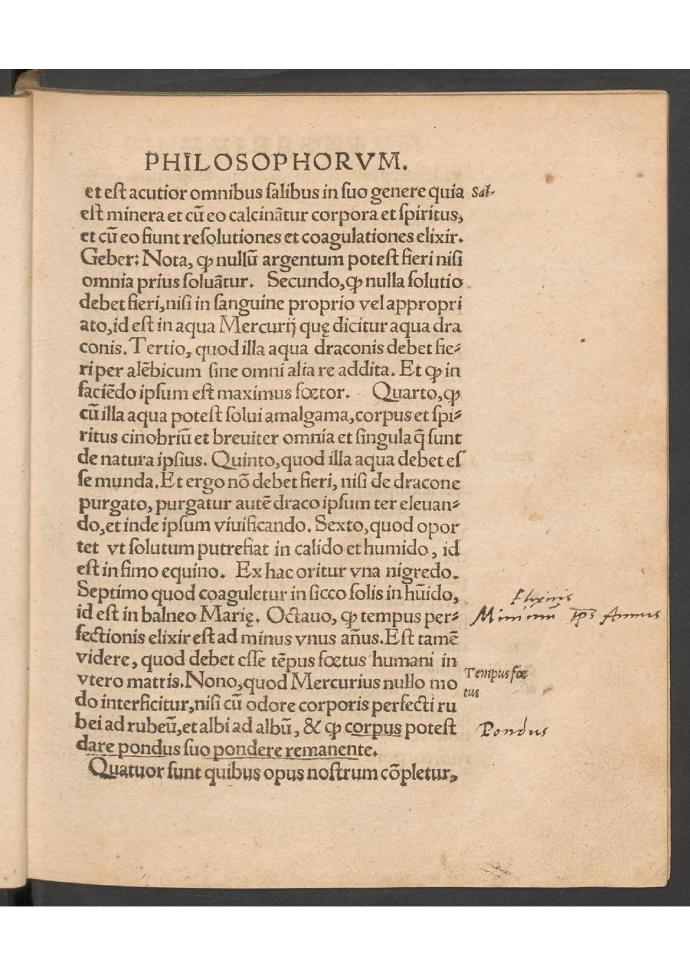 PHILOSOPHORVM.
et eſt acutior omnibus ſalibus in ſuo genere quia
Sal.
eſt minera et cū eo calcinātur corpora et ſpiritus,
et cū eo fiunt reſolutiones et coagulationes elixir.
Geber: Nota, ꝙ nullū argentum poteſt fieri niſi
omnia prius ſoluātur. Secundo, ꝙ nulla ſolutio
debet fieri, niſi in ſanguine proprio vel appropri
ato, id eſt in aqua Mercurij quę dicitur aqua dra
conis. Tertio, quod illa aqua draconis debet fie⸗
ri per alēbicum ſine omni alia re addita. Et ꝙ in
faciēdo ipſum eſt maximus fœtor. Quarto, ꝙ
cū illa aqua poteſt ſolui amalgama, corpus et ſpi⸗
ritus cinobriū et breuiter omnia et ſingula q̄ ſunt
de natura ipſius. Quinto, quod illa aqua debet eſ
ſe munda. Et ergo nō debet fieri, niſi de dracone
purgato, purgatur autē draco ipſum ter eleuan⸗
do, et inde ipſum viuificando. Sexto, quod opor
tet vt ſolutum putrefiat in calido et humido, id
eſt in fimo equino. Ex hac oritur vna nigredo.
Septimo quod coaguletur in ſicco ſolis in hūido,
Elixiris
id eſt in balneo Marię. Octauo, ꝙ tempus per⸗
Minimū tp̄s Annus
fectionis elixir eſt ad minus vnus añus. Eſt tamē
videre, quod debet eſſe tēpus fœtus humani in
vtero matris. Nono, quod Mercurius nullo mo
Tempus fœ
tus
do interficitur, niſi cū odore corporis perfecti ru
bei ad rubeū, et albi ad albū, & ꝙ corpus poteſt
Pondus
dare pondus ſuo pondere remanente.
Quatuor ſunt quibus opus noſtrum cōpletur,